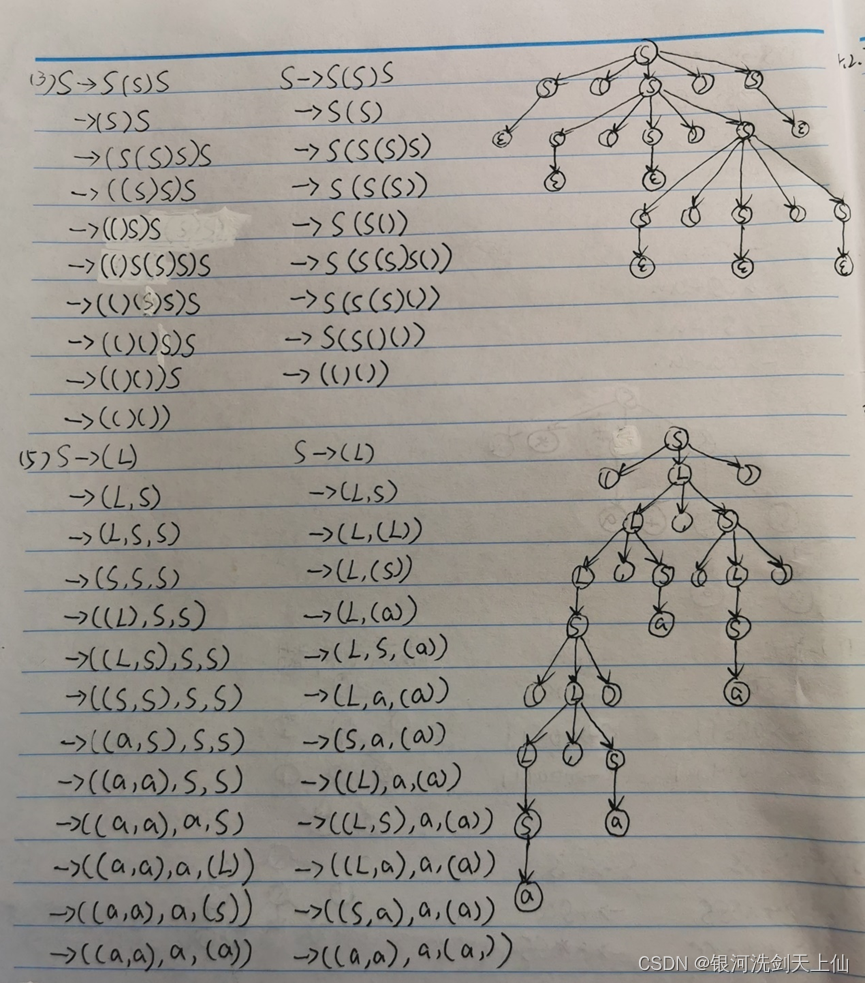 (3) S→S(S)S S→S(S)S
→(S)S →S(S)
→(S(S)S)S →S(S(S)S)
→((S)S)S →S(S(S))
→(()S)S →S(S())
→(()S(S)S)S →S(S(S)S())
→(()(S)S)S →S(S(S)())
→(()()S)S →S(S()())
→(()())S →(()())
→(()())
S
S ( S ) S
ε S ( S ) S ε
ε ε
S ( S ) S
ε ε ε
(5) S→(L) S→(L)
→(L,S) →(L,S)
→(L,S,S) →(L,(L))
→(S,S,S) →(L,(S))
→((L),S,S) →(L,(a))
→((L,S),S,S) →(L,S,(a))
→((S,S),S,S) →(L,a,(a))
→((a,S),S,S) →(S,a,(a))
→((a,a),S,S) →((L),a,(a))
→((a,a),a,S) →((L,S),a,(a))
→((a,a),a,(L)) →((L,a),a,(a))
→((a,a),a,(S)) →((S,a),a,(a))
→((a,a),a,(a)) →((a,a),a,(a,))
S
( L )
L , S
L , S ( L )
S a S
( L ) a
L , S
S a
a
CSDN @银河洗剑天上仙